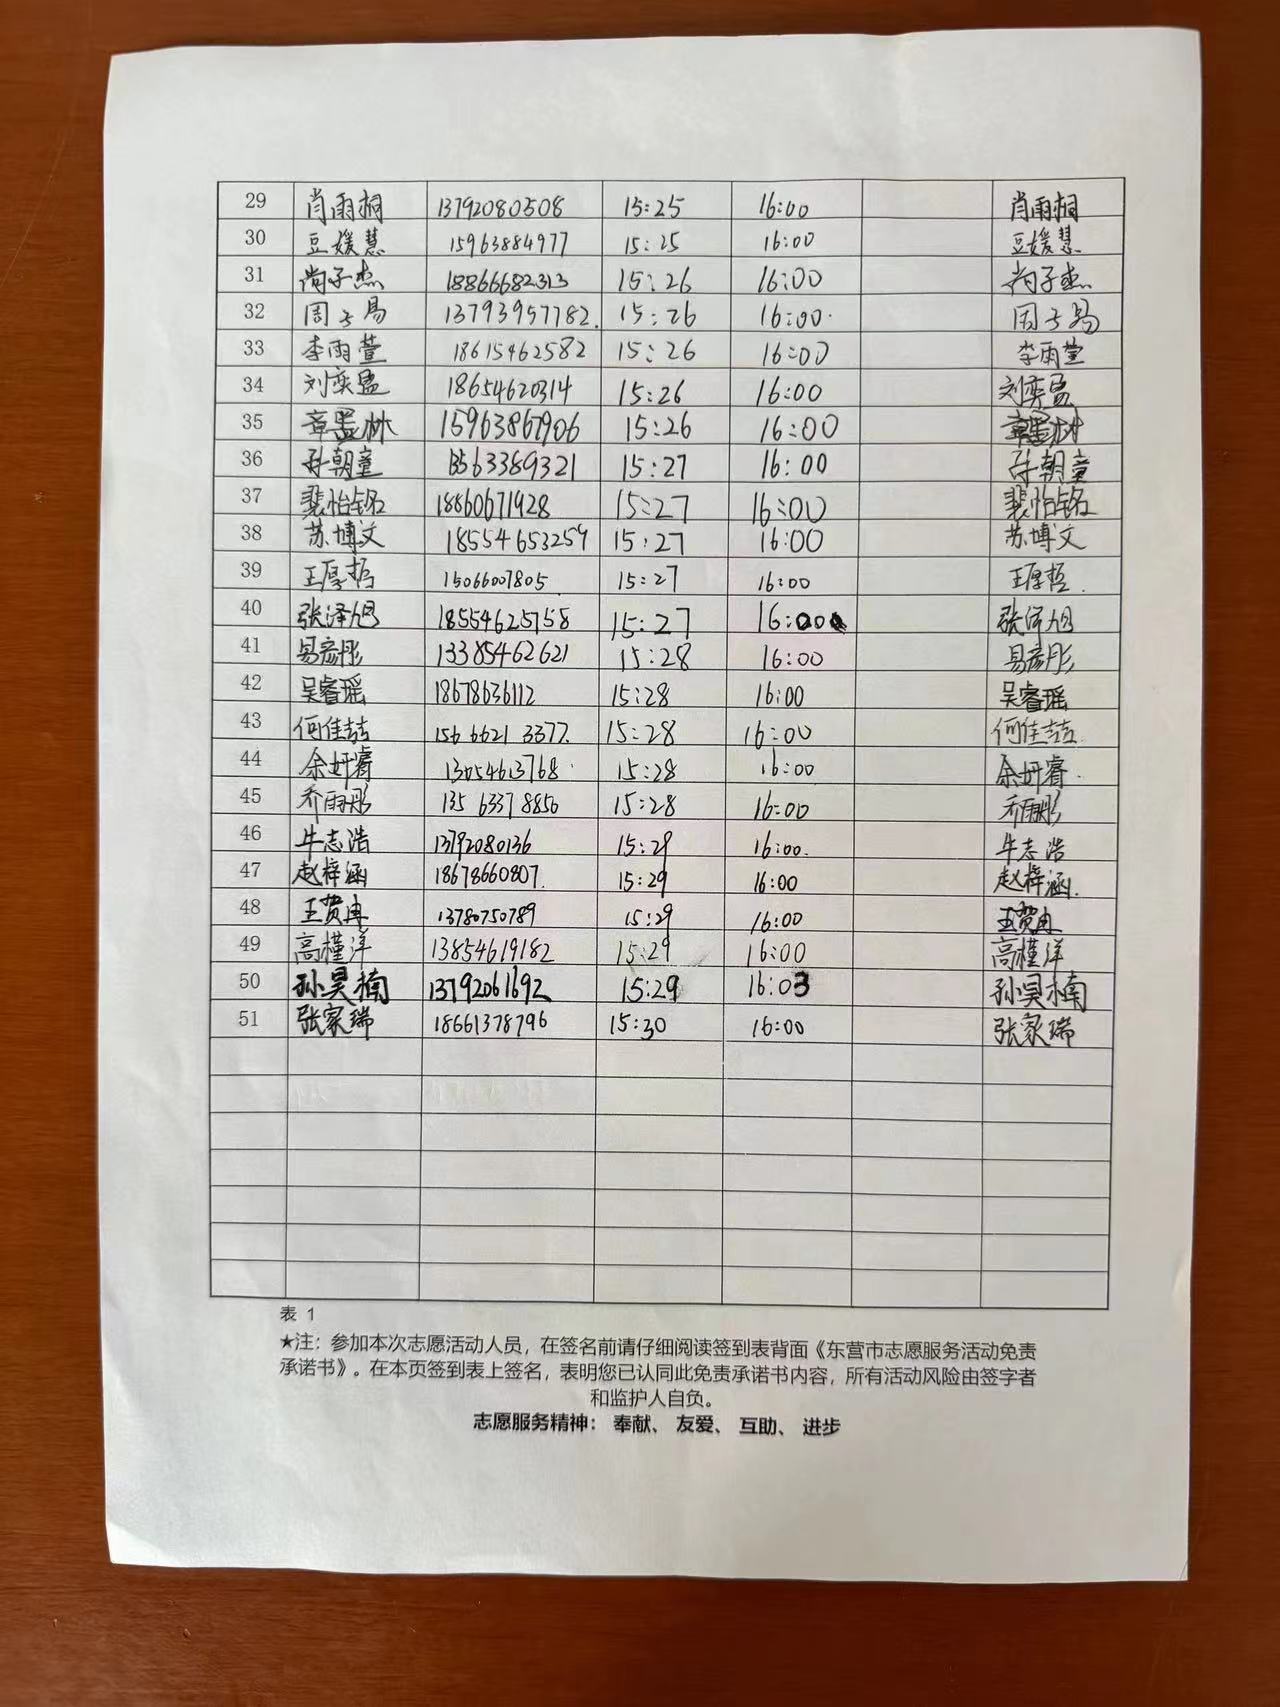 29 肖雨桐 13792080508 15:25 16:00 肖雨桐
30 豆媛慧 15963884977 15:25 16:00 豆媛慧
31 尚子杰 18866682313 15:26 16:00 尚子杰
32 周子易 13793957782. 15:26 16:00. 周子易
33 李雨萱 18615462582 15:26 16:00 李雨萱
34 刘奕孟 18654620314 15:26 16:00 刘奕孟
35 15963867906 15:26 16:00
36 孙朝童 13563389321 15:27 16:00 孙朝童
37 裴怡铭 18860671928 15:27 16:00 裴怡铭
38 苏博文 18554653259 15:27 16:00 苏博文
39 王厚哲 15066007805. 15:27 16:00 王厚哲.
40 张泽旭 18554625758 15:27 16:00 张泽旭
41 易彦彤 13385462621 15:28 16:00 易彦彤
42 吴睿瑶 18678636112 15:28 16:00 吴睿瑶
43 何佳喆 156 6621 3377. 15:28 16:00 何佳喆.
44 余妍睿 13054613768. 15:28 16:00 余妍睿.
45 乔雨彤 135 6337 8856 15:28 16:00 乔雨彤
46 牛志浩 13792080136 15:29 16:00. 牛志浩
47 赵梓涵 18678660807. 15:29 16:00 赵梓涵.
48 王贺冉 13780750789 15:29 16:00 王贺冉
49 高槿洋 13854619182 15:29 16:00 高槿洋
50 孙昊楠 13792061692 15:29 16:03 孙昊楠
51 张家瑞 18661378796 15:30 16:00 张家瑞
表 1
★注：参加本次志愿活动人员，在签名前请仔细阅读签到表背面《东营市志愿服务活动免责
承诺书》。在本页签到表上签名，表明您已认同此免责承诺书内容，所有活动风险由签字者
和监护人自负。
志愿服务精神： 奉献、 友爱、 互助、 进步